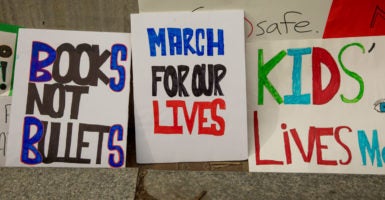 BOOKS
NOT
BULLETS
MARCH
FOR OUR
LIVES
safe.
KIDS'
LIVES